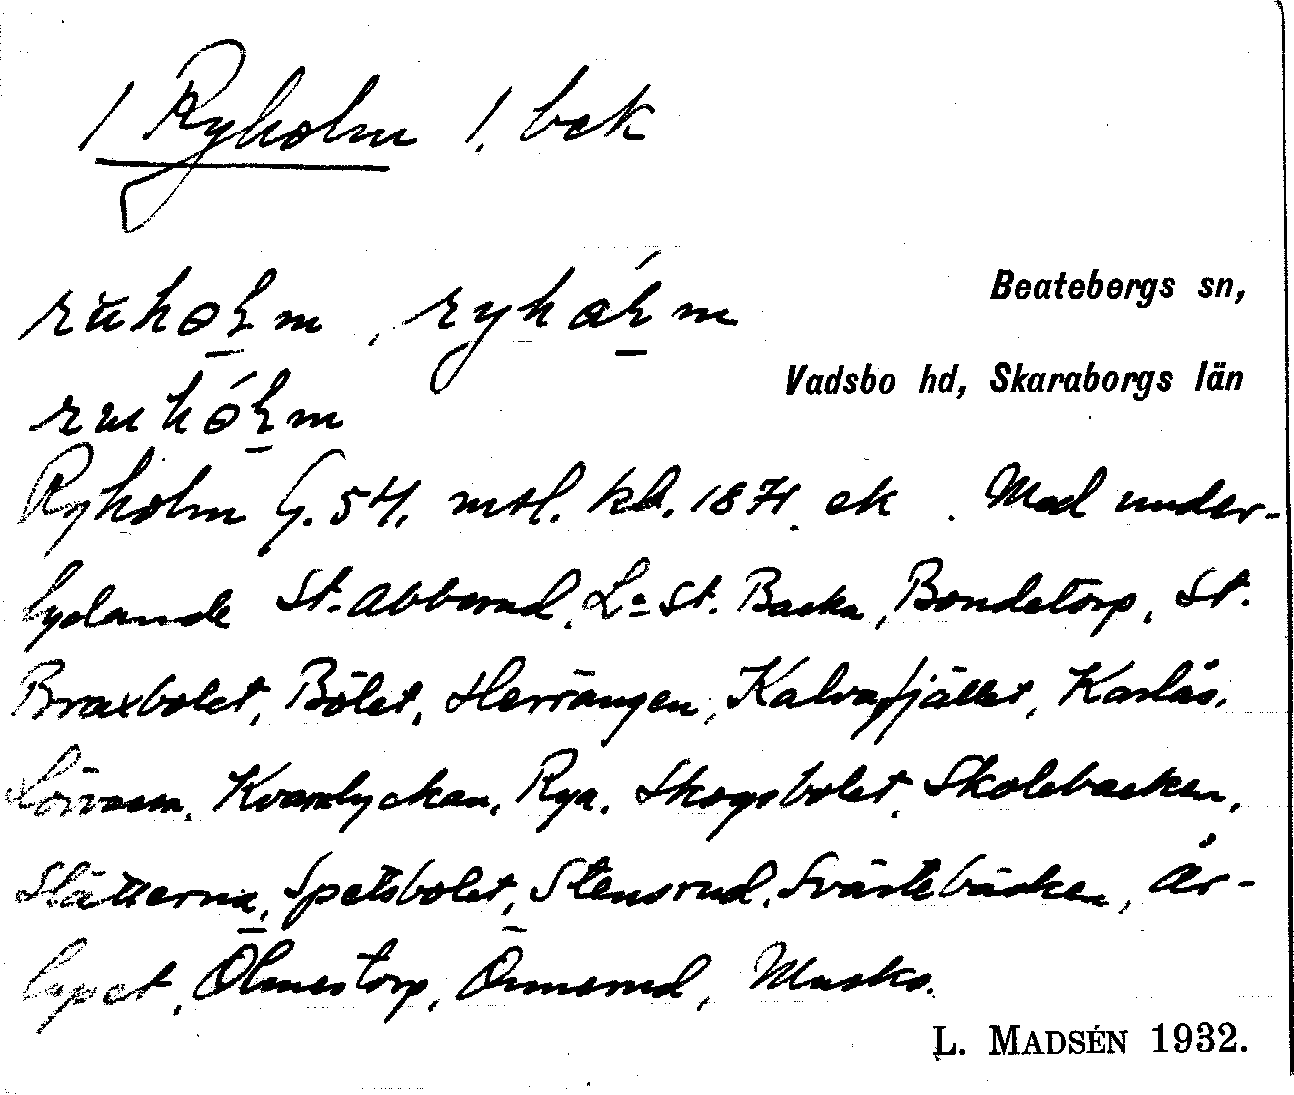 1 Ryholm 1. bek
Beatebergs sn,
Vadsbo hd, Skaraborgs län
Ryholm G. 54. mtl. kb. 1871. ek. Med under-
lydande St. Abborud, L. o St. Backa, Bondetorp, St.
Braxbolet, Bölet, Herrängen, Kalvafjället, Karlås,
Lörvassa, Kvarnlyckan, Rya, Skogsbolet, Skolebacken,
Slätterna, Spetsbolet, Stensrud, Svartebäcken, År-
lypet, Ölmestorp, Önnerud,
L. MADSÉN 1932.